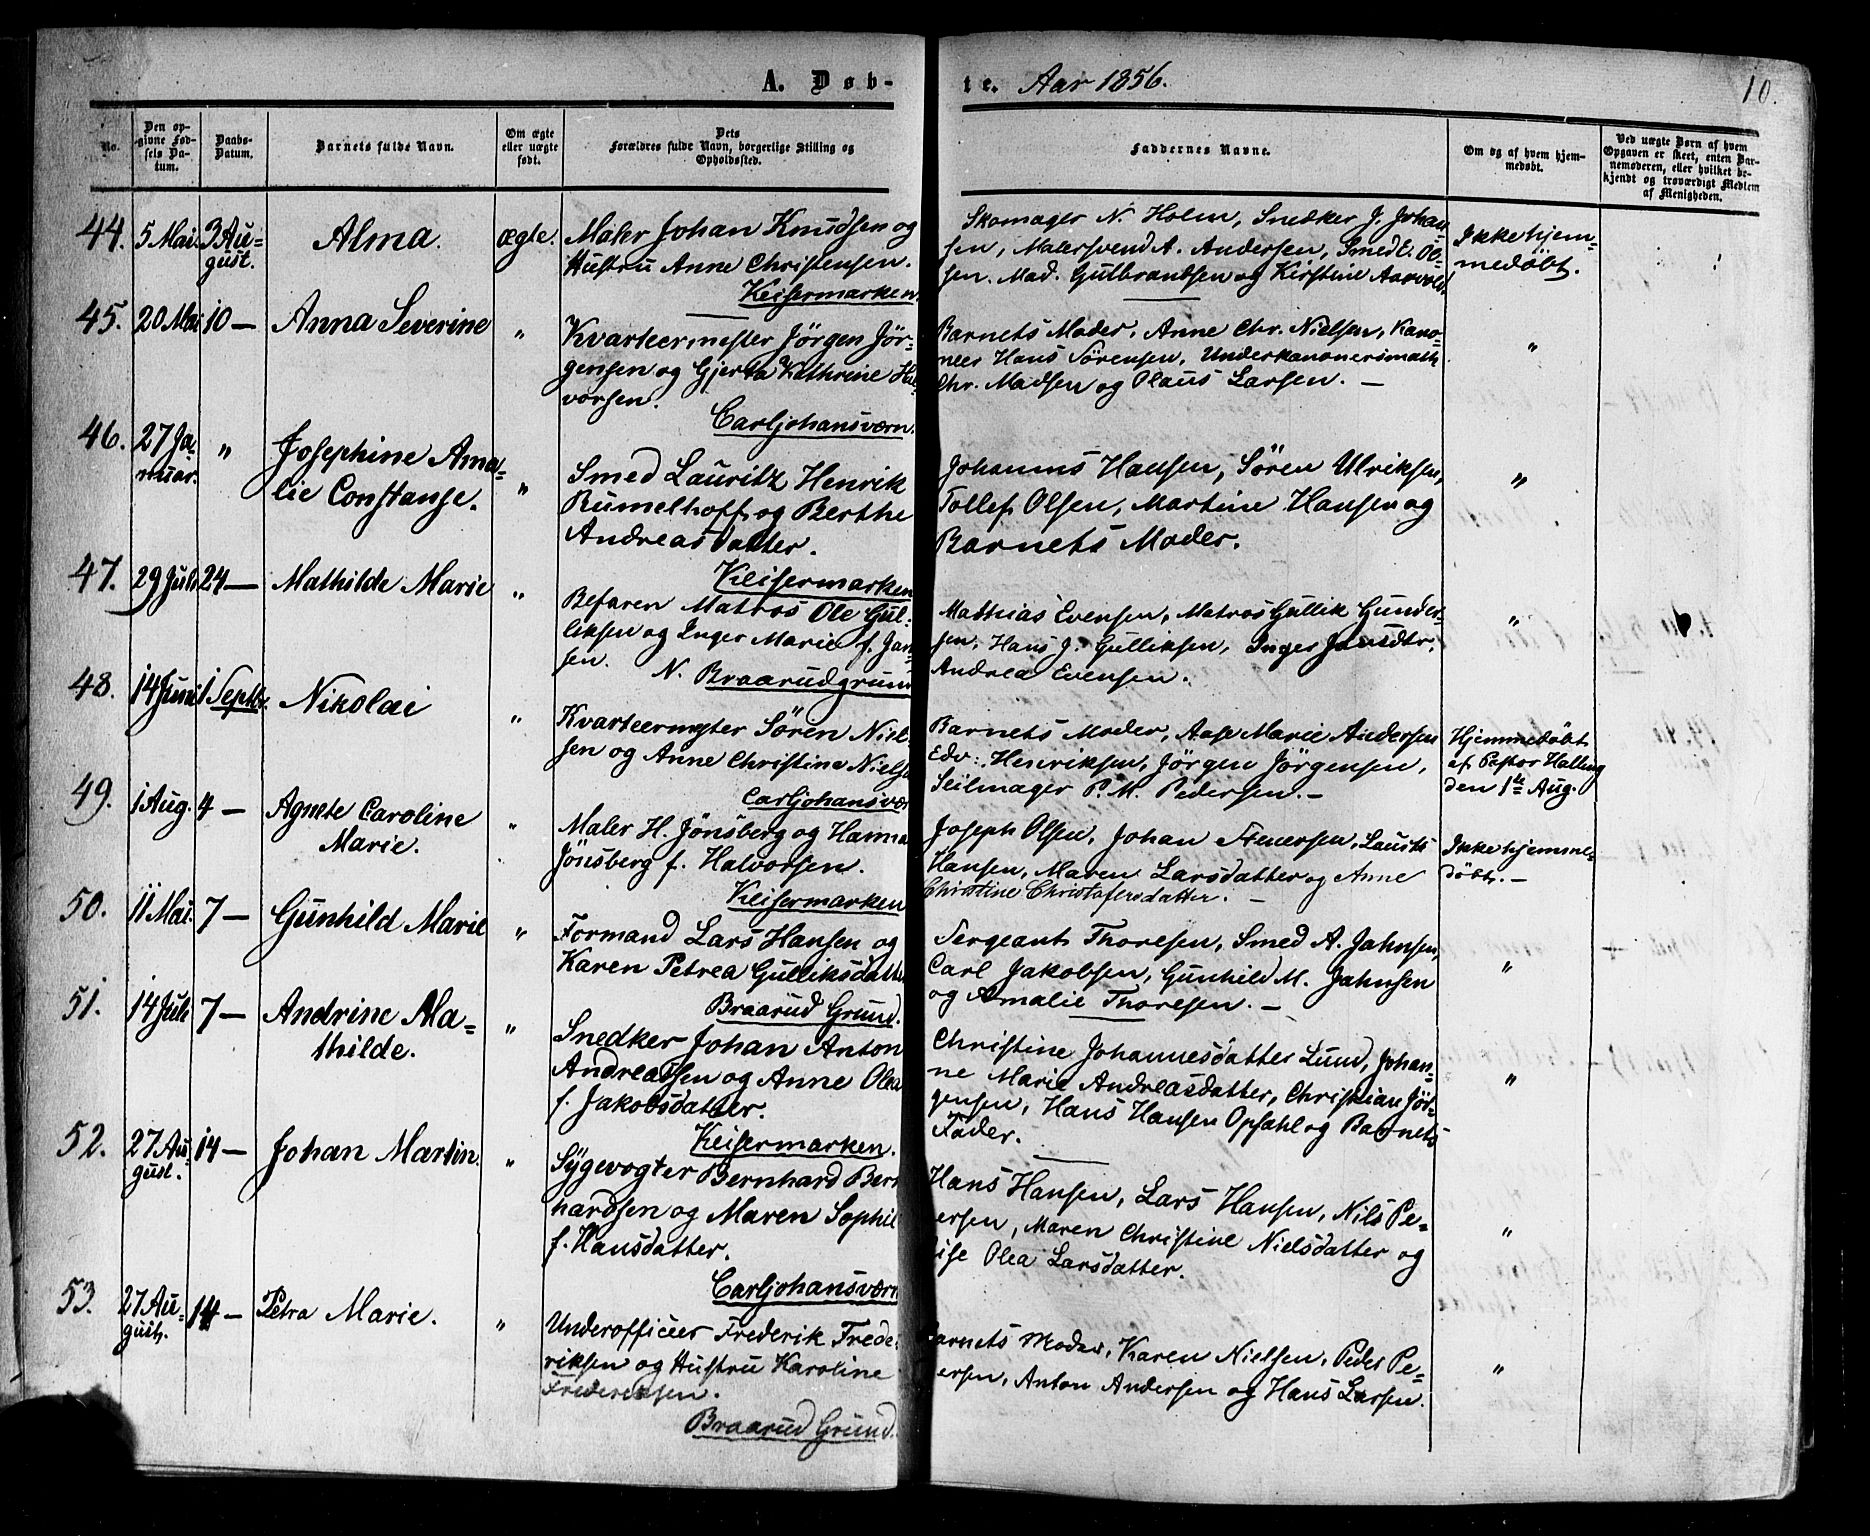 A. Døb-
te. Aar 1856.
10.
No.
Den op-
givne Fød-
sels Da-
tum.
Daabs-
Datum.
Barnets fulde Navn.
Om ægte
eller uægte
født.
Dets
Forældres fulde Navn, borgerlige Stilling og
Opholdssted.
Faddernes Navne.
Om og af hvem hjem-
medøbt.
Ved uægte Børn af hvem
Opgaven er skeet, enten Bar-
nemoderen, eller hvilket be-
kjendt og troværdigt Medlem
af Menigheden.
44.
5 Mai.
3 Au-
gust.
Alma.
ægte.
Maler Johan Knudsen og
Hustru Anne Christensen.
Keisermarken
Skomager N. Holm, Snedker J. Johan-
sen, Malersvend A. Andersen, Smed E. Ol-
sen. Mad. Gulbrandsen og Kirstine Aarvold.
Ikke hjem-
medøbt.
45.
20 Mai
10 —
Anna Severine
"
Kvarteermester Jörgen Jör-
gensen og Gjerta Kathrine Hal-
vorsen.
Carljohansværn.
Barnets Moder, Anne Chr. Nielsen, Kano-
neer Hans Sörensen, Underkanoneersmath
Chr. Madsen og Olaus Larsen. —
"
46.
27 Ja-
nuar.
"
Josephine Ama-
lie Constanse.
"
Smed Lauritz Henrik
Rumelhoff og Berthe
Andreasdatter.
Keisermarken
Johannes Hansen, Sören Ulriksen,
Tollef Olsen, Martine Hansen og
Barnets Moder.
"
47.
29 Juli
24 —
Mathilde Marie
"
Befaren Matros Ole Gul-
liksen og Inger Marie f. Jan-
sen.
N. Braarudgrund
Matthias Evensen, Matros Gullik Gunder-
sen, Hans J. Gulliksen, Inger Jansdtr.
Andrea Evensen.
"
48.
14 Juni
1 Septbr.
Nikolai
"
Kvarteermester Sören Niel-
sen og Anne Christina Nielsen
Carljohansvær
Barnets Moder, Aase Marie Andersen
Edv. Henriksen, Jörgen Jörgensen,
Seilmager P. M. Pedersen. —
Hjemmedöbt
af Pastor Halling
den 1te Aug.
49.
1 Aug.
4 —
Agnete Caroline
Marie.
"
Maler H. Jönsberg og Hanna
Jönsberg f. Halvorsen.
Keisermarken
Joseph Olsen, Johan Steuersen, Laurits
Hansen, Maren Larsdatter og Anne
Christine Christofersdatter. —
Ikke hjemme-
döbt. —
50.
11 Mai.
7 —
Gunhild Marie
"
Formand Lars Hansen og
Karen Petrea Gulliksdatter
Braarud Grund.
Sergeant Thoresen, Smed A. Jahnsen,
Carl Jakobsen, Gunhild M. Jahnsen
og Amalie Thoresen. —
"
51.
14 Juli
7 —
Andrine Ma-
thilde.
"
Snedker Johan Anton
Andreassen og Anne Olea
f. Jakobsdatter.
Keisermarken.
Christine Johannesdatter Lund, Johan-
ne Marie Andreasdatter, Christian Jör-
gensen, Hans Hansen Opsahl og Barnets
Fader.
"
52.
27 Au-
gust.
14 —
Johan Martin.
"
Sygevogter Bernhard Bern
hardsen og Maren Sophie
f. Hansdatter.
Carljohansværn
Hans Hansen, Lars Hansen, Nils Pe-
dersen, Maren Christine Nielsdatter og
Lise Olea Larsdatter.
"
53.
27 Au-
gust.
14 —
Petra Marie.
"
Underofficeer Frederik Frede-
riksen og Hustru Karoline
Frederiksen.
Braarud Grund.
Barnets Moder, Karen Nielsen, Peder Pe-
dersen, Anton Andersen og Hans Larsen.
"